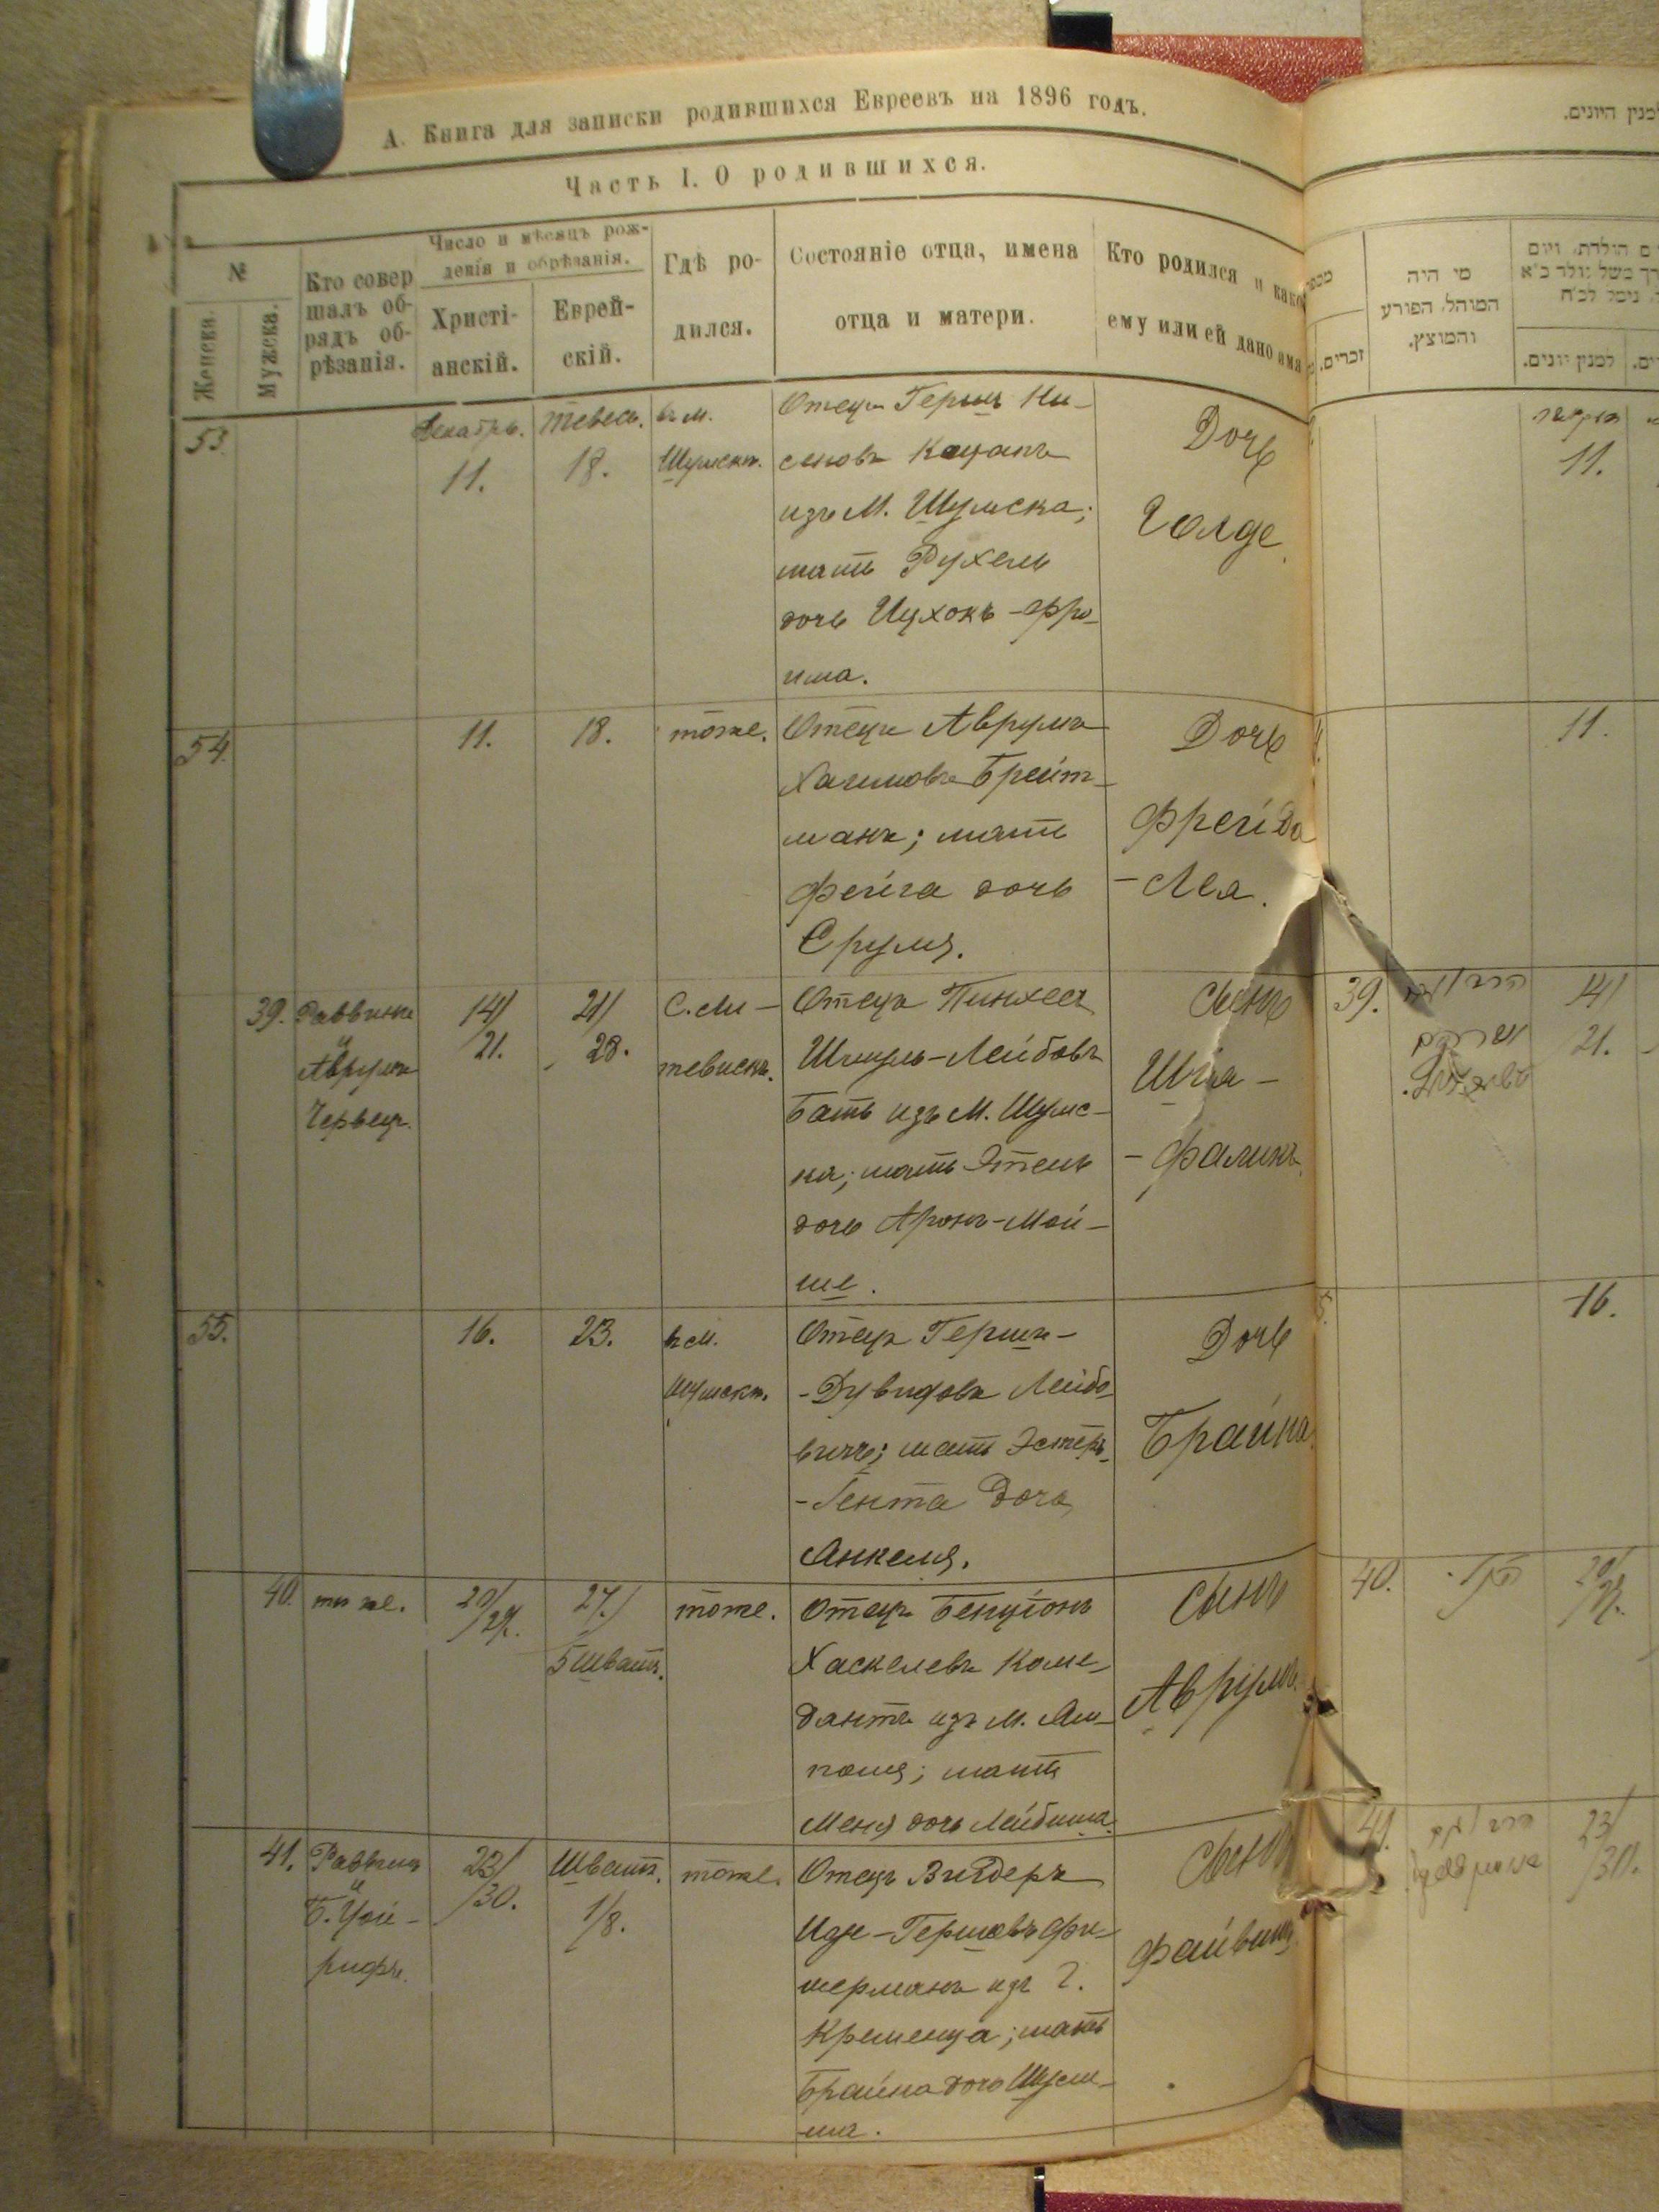 А. Книга для записки родившихся Евреевъ на 1896 годъ.
Часть I. О родившихся.
№
Женска.
Мужска.
Кто совер
шалъ об-
рядъ об-
рѣзанія.
Число и мѣсяцъ рож-
денія и обрѣзанія.
Христі-
анскій.
Еврей-
скій.
Гдѣ ро-
дился.
Состояніе отца, имена
отца и матери.
Кто родился и какое
ему или ей дано имя
53.
Декабрь.
11.
Тевесь.
18.
въ м.
Шумскѣ.
Отецъ Гершъ Ни-
сеновъ Кацанъ
изъ М. Шумска;
мать Рухель
дочь Ицхокъ-Фро-
има.
Дочь
Голде.
54.
11.
18.
тоже.
Отецъ Аврумъ
Хаимовъ Брейт-
манъ; мать
Фейга дочь
Сруля.
Дочь
Фрейда
-Лея.
39.
Раввинъ
и
Аврумъ
Червец.
14/
21.
21/
28.
С. Ли-
тевискъ.
Отецъ Пинхес
Шмуль-Лейбовъ
Бать изъ М. Шумс-
ка; мать Этель
дочь Аронъ-Мой-
ше.
Сынъ
Шая-
-Фаликъ.
55.
16.
23.
въ М.
Шумскѣ.
Отецъ Гершъ-
-Дувидовъ Лейбо-
вичъ; мать Эстеръ-
-Гента дочь
Анкеля.
Дочь
Брайна.
40.
тоже.
20/
/27.
27./
5 Шватъ.
тоже.
Отецъ Бенціонъ
Хаскелевъ Коме-
дантъ изъ М. Ям-
поля; мать
Меня дочь Лейбиша.
Сынъ
Аврумъ.
41.
Раввинъ
и
Б. Цой-
рифъ.
23/
/30.
Шватъ.
1/8.
тоже.
Отецъ Вигдеръ
Идъ-Гершовъ Фи-
шерманъ изъ Г.
Кременца; мать
Брайна дочь Шуси-
ма.
Сынъ
Файвишъ.
למנין היונים.
מי היה
המוהל, הפורע
והמוצץ.
זכרים.
למנין יונים.
11.
11.
39.
14/
21.
16.
40.
20/
/27.
41.
23/
/30.